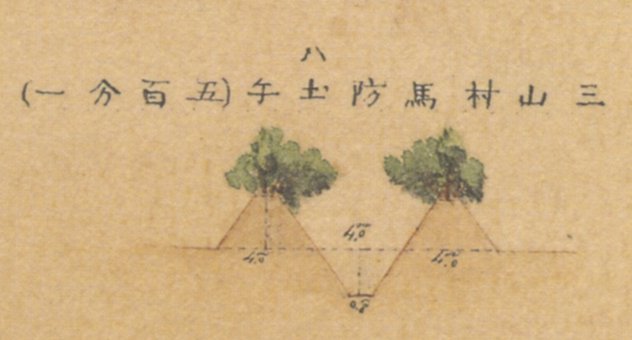 八
三山村馬防土手(五百分一)
4.0m
4.0
4.0m